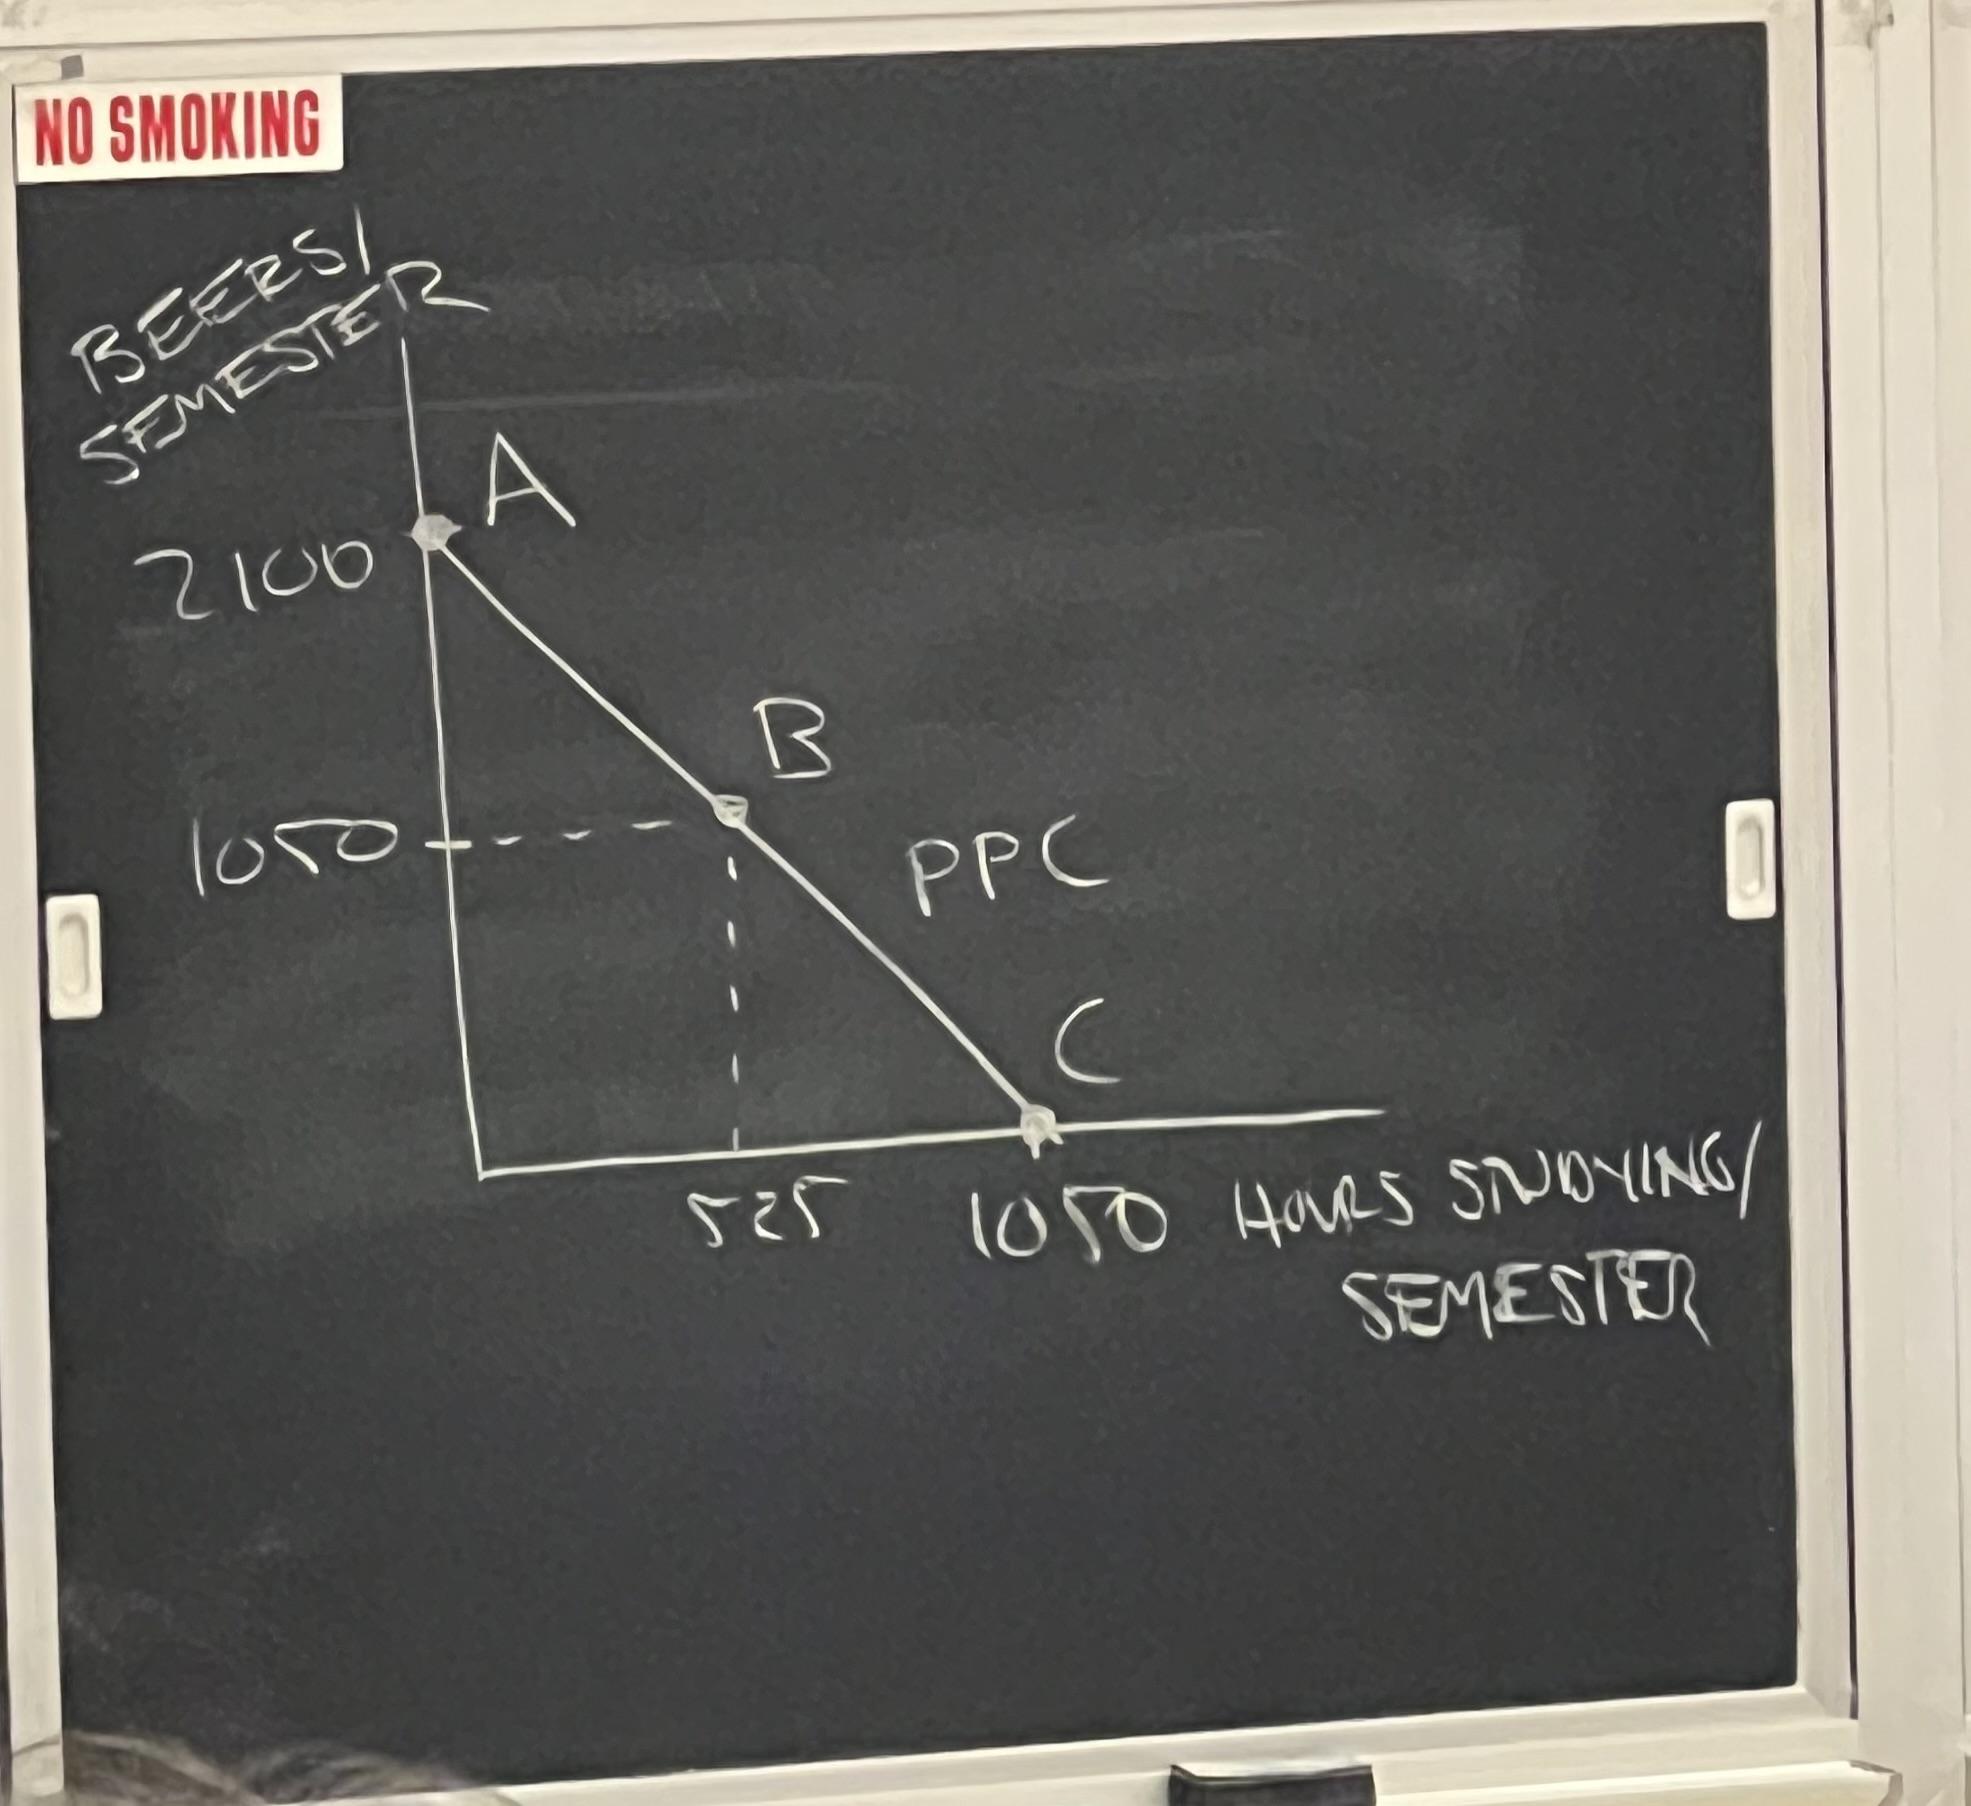 NO SMOKING
BEERS/
SEMESTER
A
2100
B
1050
PPC
C
525
1050
HOURS STUDYING/
SEMESTER